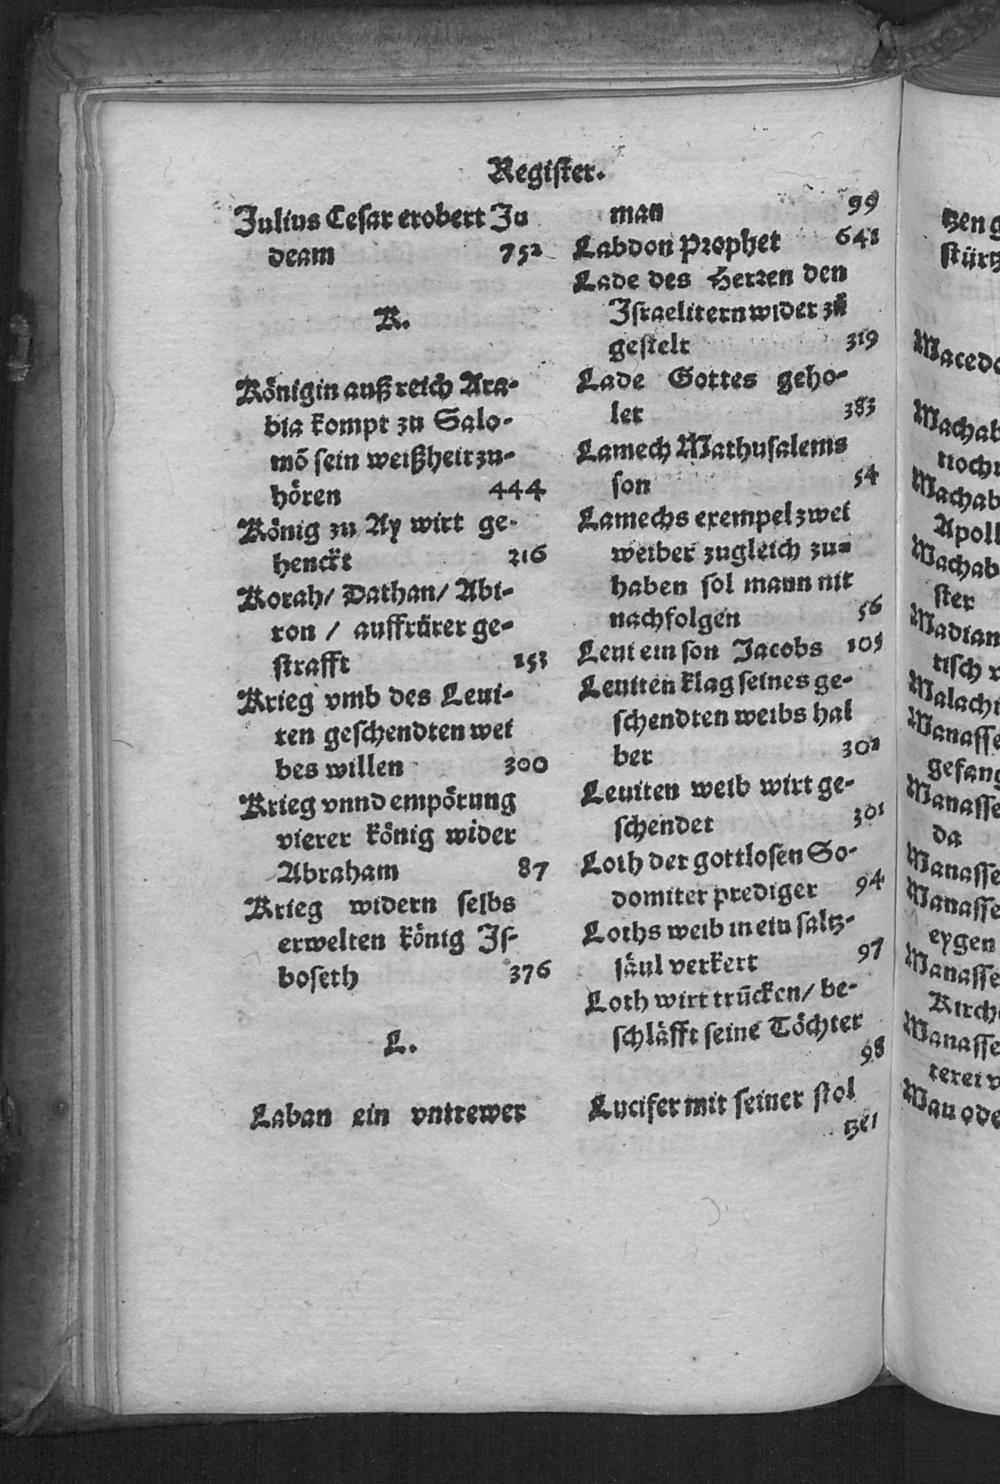 Register.
Julius Cesar erobert Ju
deam 752
K.
Königin auß reich Ara-
bia kompt zu Salo-
mō sein weißheit zu-
hören 444
König zu Ay wirt ge-
henckt 216
Korah/ Dathan/ Abi-
ron / auffrürer ge-
strafft 153
Krieg vmb des Leui-
ten geschendten wei
bes willen 300
Krieg vnnd empörung
vierer könig wider
Abraham 87
Krieg widern selbs
erwelten könig Is-
boseth 376
L.
Laban ein vntrewer
man 99
Labdon Prophet 641
Lade des Herren den
Israelitern wider zů
gestelt 319
Lade Gottes geho-
let 383
Lamech Mathusalems
son 54
Lamechs exempel zwei
weiber zugleich zu-
haben sol mann nit
nachfolgen 56
Leui ein son Jacobs 105
Leuiten klag seines ge-
schendten weibs hal
ber 302
Leuiten weib wirt ge-
schendet 301
Loth der gottlosen So-
domiter prediger 94
Loths weib in ein saltz-
säul verkert 97
Loth wirt trūcken/ be-
schläfft seine Töchter
98
Lucifer mit seiner stol
tzei
tzen g
stürtz
Macedo
Machab
noch
Machab
Apoll
Machab
ster
Madian
tisch
Malachi
Manasse
gefang
Manasse
da
Manasse
Manasse
eygen
Manasse
Kirch
Manasse
terei v
Man ode